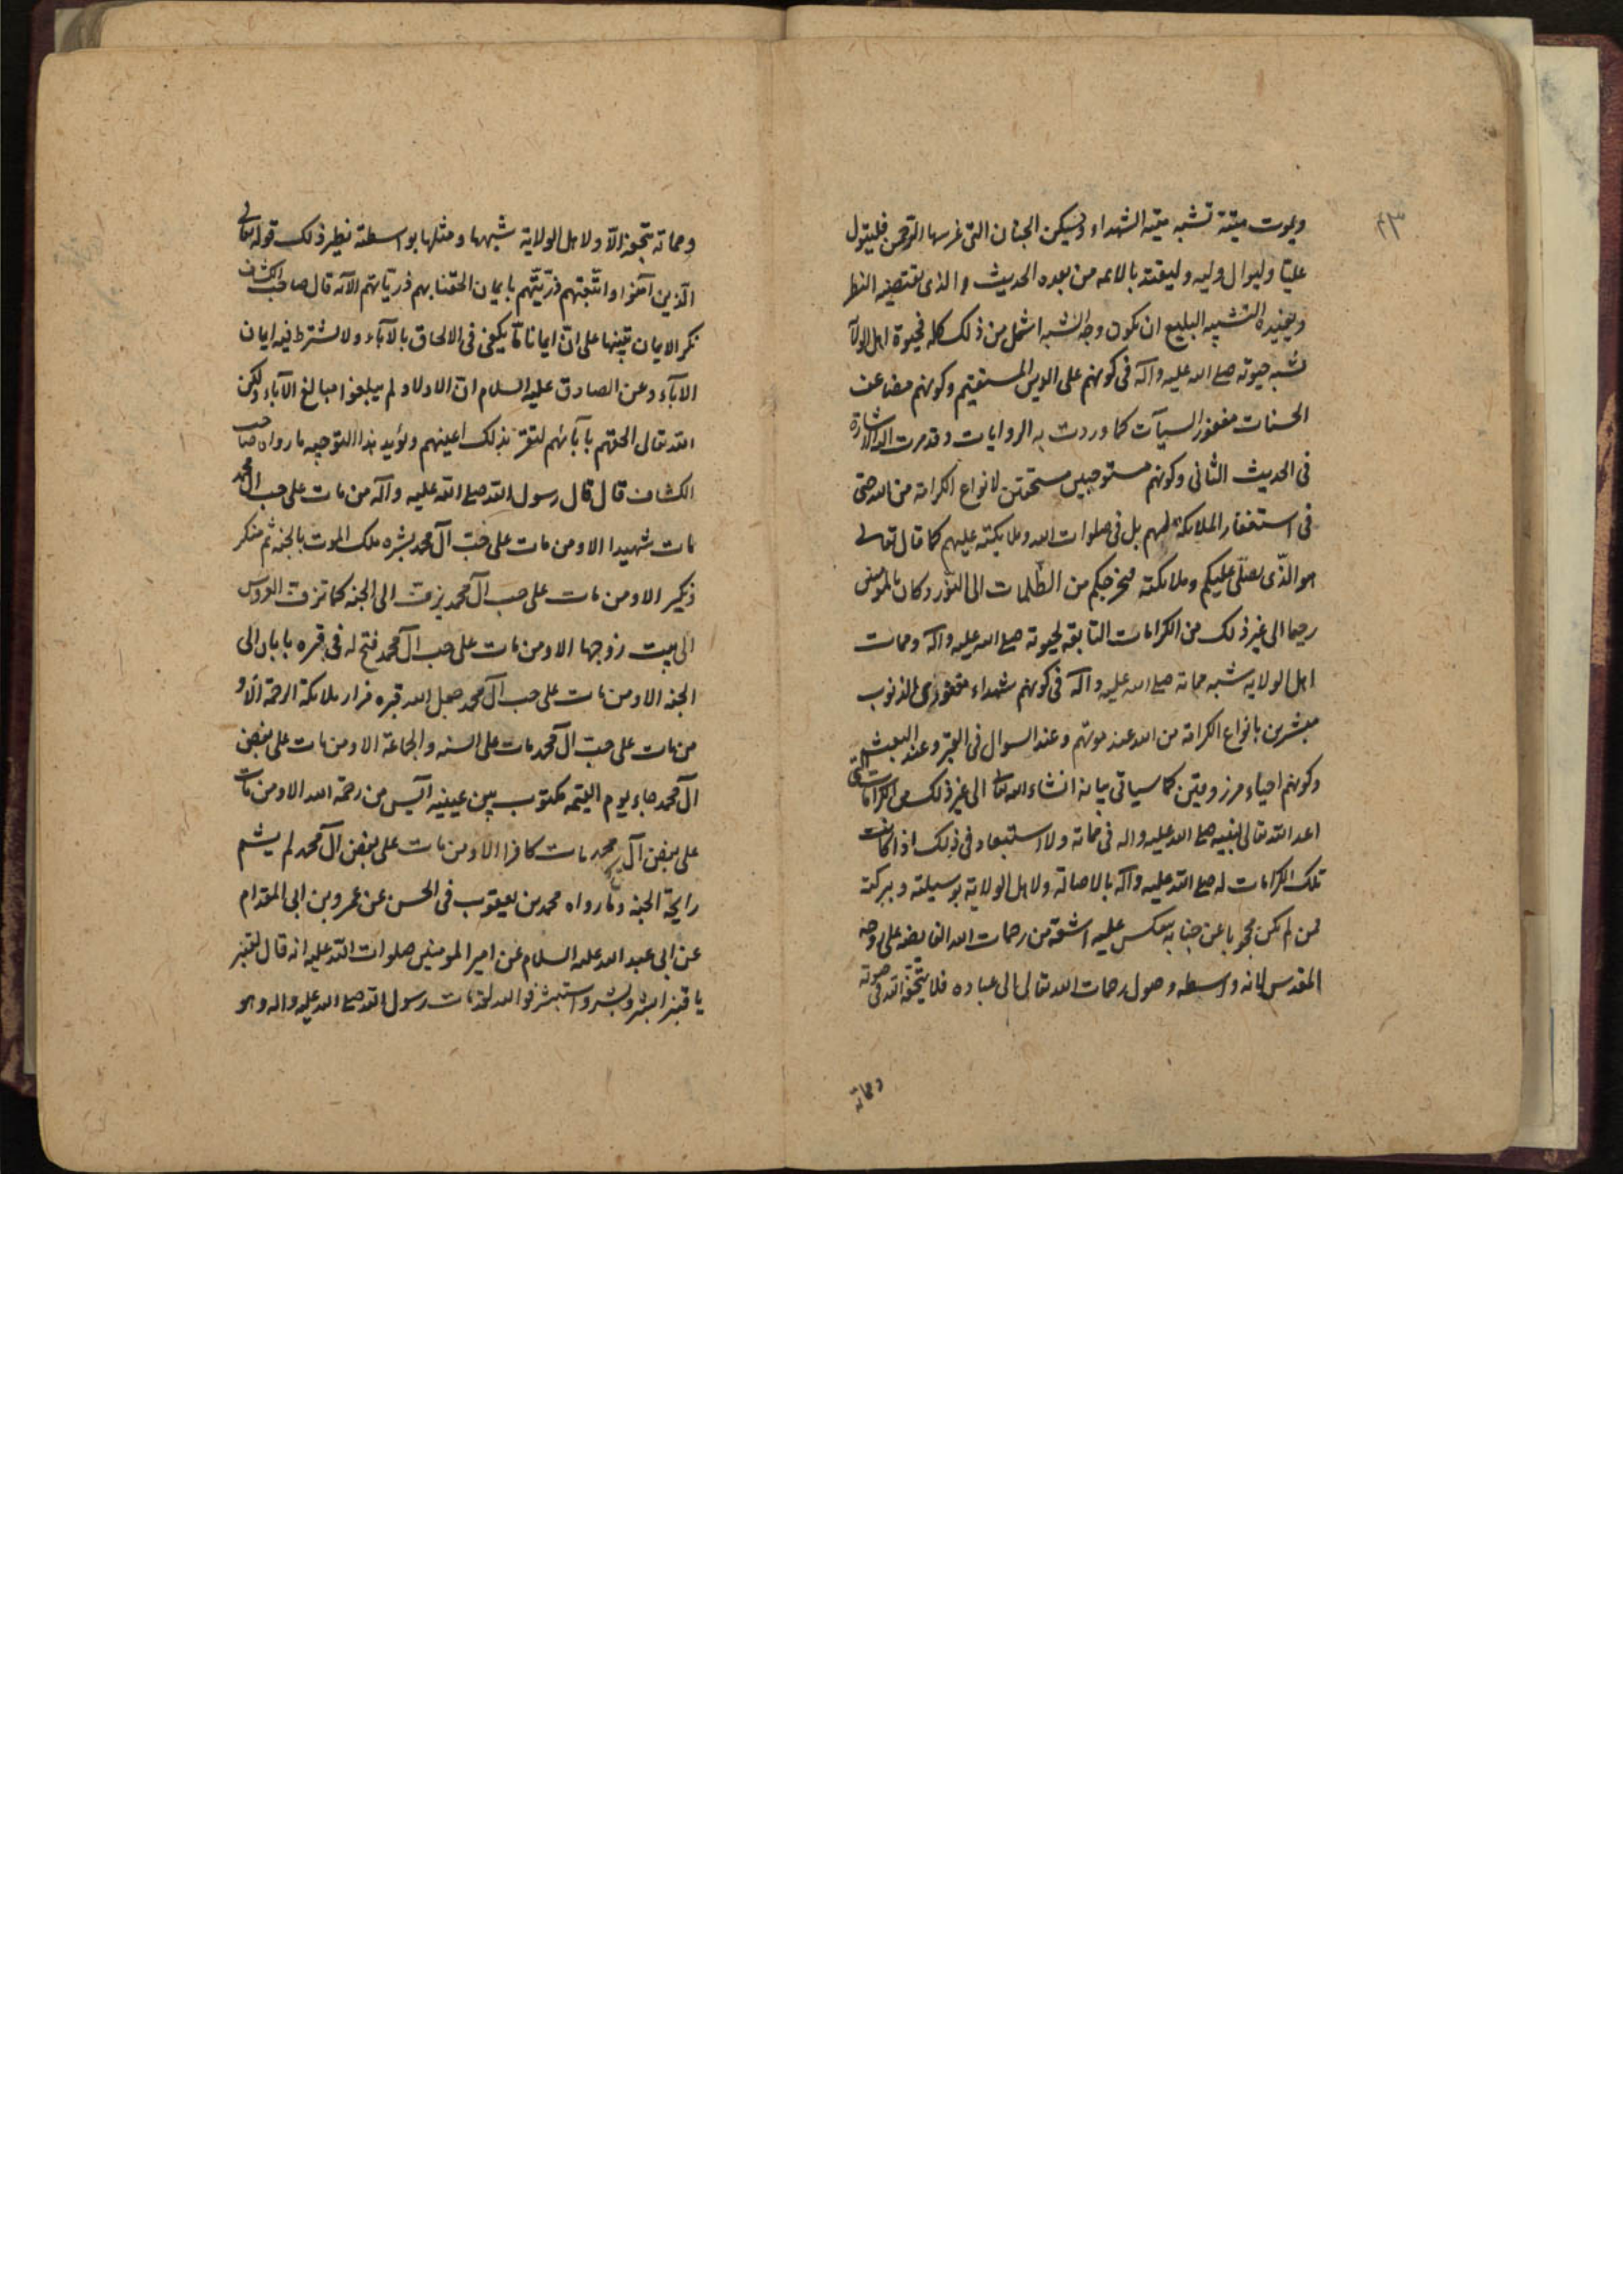 ٤٣
ويموت ميتة تشبه ميتة الشهداء ويسكن الجنان التي غرسها الرحمن فليتول
عليا وليوال وليه وليقتد بالائمه من بعده الحديث والذى يقتضيه النظر
ويفيده التشبيه البليغ ان يكون وجه الشبه اشمل من ذلك كله فحيوة اهل الولا
تشبه حيوته صلى الله عليه وآله فى كونهم على الدين المستقيم وكونهم مضاعف
الحسنات مغفور السيآت كما وردت به الروايات وقد مرت اليه الاشارة
فى الحديث الثانى وكونهم مستوجبين مستحقين لانواع الكرامة من الله حتى
فى استغفار الملائكة لهم بل فى صلوات الله وملائكته عليهم كما قال تعالى
هو الذّى يصلّى عليكم وملائكته ليخرجكم من الظّلمات الى النّور وكان بالمؤمنين
رحيما الى غير ذلك من الكرامات التابعة لحيوته صلى الله عليه وآله وممات
اهل الولايه تشبه مماته صلى الله عليه وآله فى كونهم شهداء مغفورى الذنوب
مبشرين بانواع الكرامة من الله عند موتهم وعند السوال فى القبر وعند البعث
وكونهم احياء مرزوقين كما سياتى بيانه انشاء الله تعالى الى غير ذلك من الكرامات التى
اعد الله تعالى لنبيه صلى الله عليه واله فى مماته ولا استبعاد فى ذلك اذا كانت
تلك الكرامات له صلى الله عليه وآله بالاصالة ولاهل الولاية بوسيلته وببركته
فمن لم يكن محجوبا عن جنابه ينعكس عليه اشعة من رحمات الله الفايضه على روحه
المقدس لانه واسطه وصول رحمات الله تعالى الى عباده فلا يتحفه الله فى حيوته
ومماته
ومماته بتحفة الا ولاهل الولاية شبهها ومثلها بواسطته نظير ذلك قوله تعالى
الّذين آمنوا واتّبعتهم ذرّيّتهم بايمان الحقنا بهم ذرياتهم الآية قال صاحب الكشاف
نكر الايمان تنبيها على انّ ايمانا مّا يكفى فى الالحاق بالآباء ولا يشترط فيه ايمان
الآباء وعن الصادق عليه السلام ان الاولاد لم يبلغوا مبالغ الآباء ولكن
الله تعالى الحقهم بآبائهم لتقرّ بذلك اعينهم ويؤيد هذا التوجيه ما رواه صاحب
الكشاف قال قال رسول الله صلى الله عليه وآله من مات على حب آل محمد
مات شهيدا الا ومن مات على حبّ آل محمد بشره ملك الموت بالجنه ثم منكر
ونكير الا ومن مات على حب آل محمد يزف الى الجنه كما تزف العروس
الى بيت زوجها الا ومن مات على حب آل محمد فتح له فى قبره بابان الى
الجنه الا ومن مات على حب آل محمد جعل الله قبره مزار ملائكة الرحمة الا و
من مات على حبّ آل محمد مات على السنه والجماعة الا ومن مات على بغض
آل محمد جاء يوم القيمه مكتوب بين عينيه آيس من رحمة الله الا ومن مات
على بغض آل محمد مات كافرا الا ومن مات على بغض آل محمد لم يشم
رايحة الجنه وما رواه محمد بن يعقوب فى الحسن عن عمرو بن ابى المقدام
عن ابى عبد الله عليه السلام عن امير المومنين صلوات الله عليه انه قال لقنبر
يا قنبر ابشر وبشر واستبشر فوالله لقد مات رسول الله صلى الله عليه واله وهو